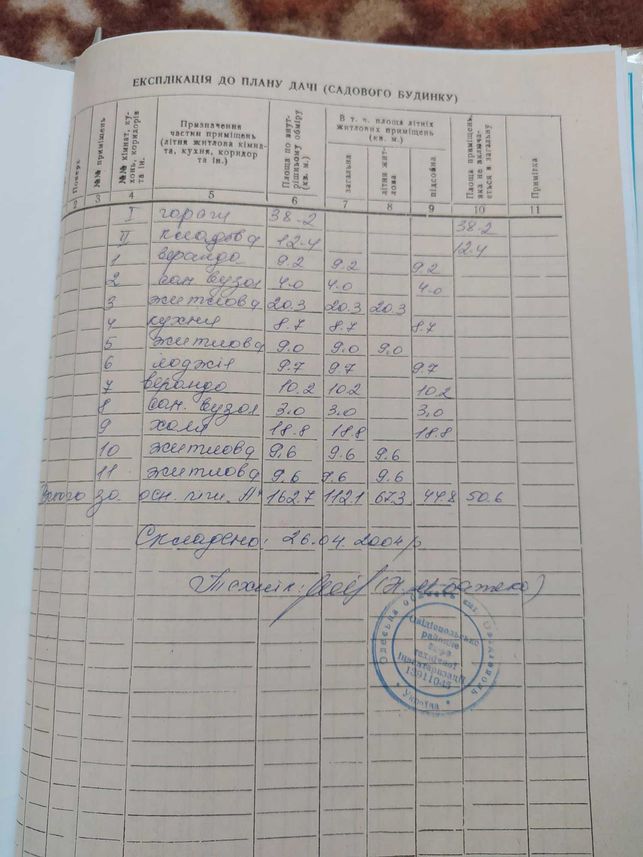 ЕКСПЛІКАЦІЯ ДО ПЛАНУ ДАЧІ (САДОВОГО БУДИНКУ)
Поверх
№№ приміщень
№№ кімнат, ку-
хонь, коридорів
та ін.
Призначення
частин приміщень
(літня житлова кімна-
та, кухня, коридор
та ін.)
Площа по внут-
рішньому обміру
(кв. м.)
В т. ч. площа літніх
житлових приміщень
(кв. м.)
загальна
літня жит-
лова
підсобна
Площа приміщень,
яка не включа-
ється в загальну
Примітка
2 3 4 5 6 7 8 9 10 11
I гараж 38.2 38.2
II кладова 12.4 12.4
1 веранда 9.2 9.2 9.2
2 сан. вузол 4.0 4.0 4.0
3 житлова 20.3 20.3 20.3
4 кухня 8.7 8.7 8.7
5 житлова 9.0 9.0 9.0
6 лоджія 9.7 9.7 9.7
7 веранда 10.2 10.2 10.2
8 сан. вузол 3.0 3.0 3.0
9 холл 18.8 18.8 18.8
10 житлова 9.6 9.6 9.6
11 житлова 9.6 9.6 9.6
Всього за осн. літ. "А" 162.7 112.1 67.3 44.8 50.6
Складено: 26.04.2004р
Технік:
Одеська область смт. Овідіополь
Овідіопольське
районне
бюро
технічної
інвентаризації
13911045
* Україна *